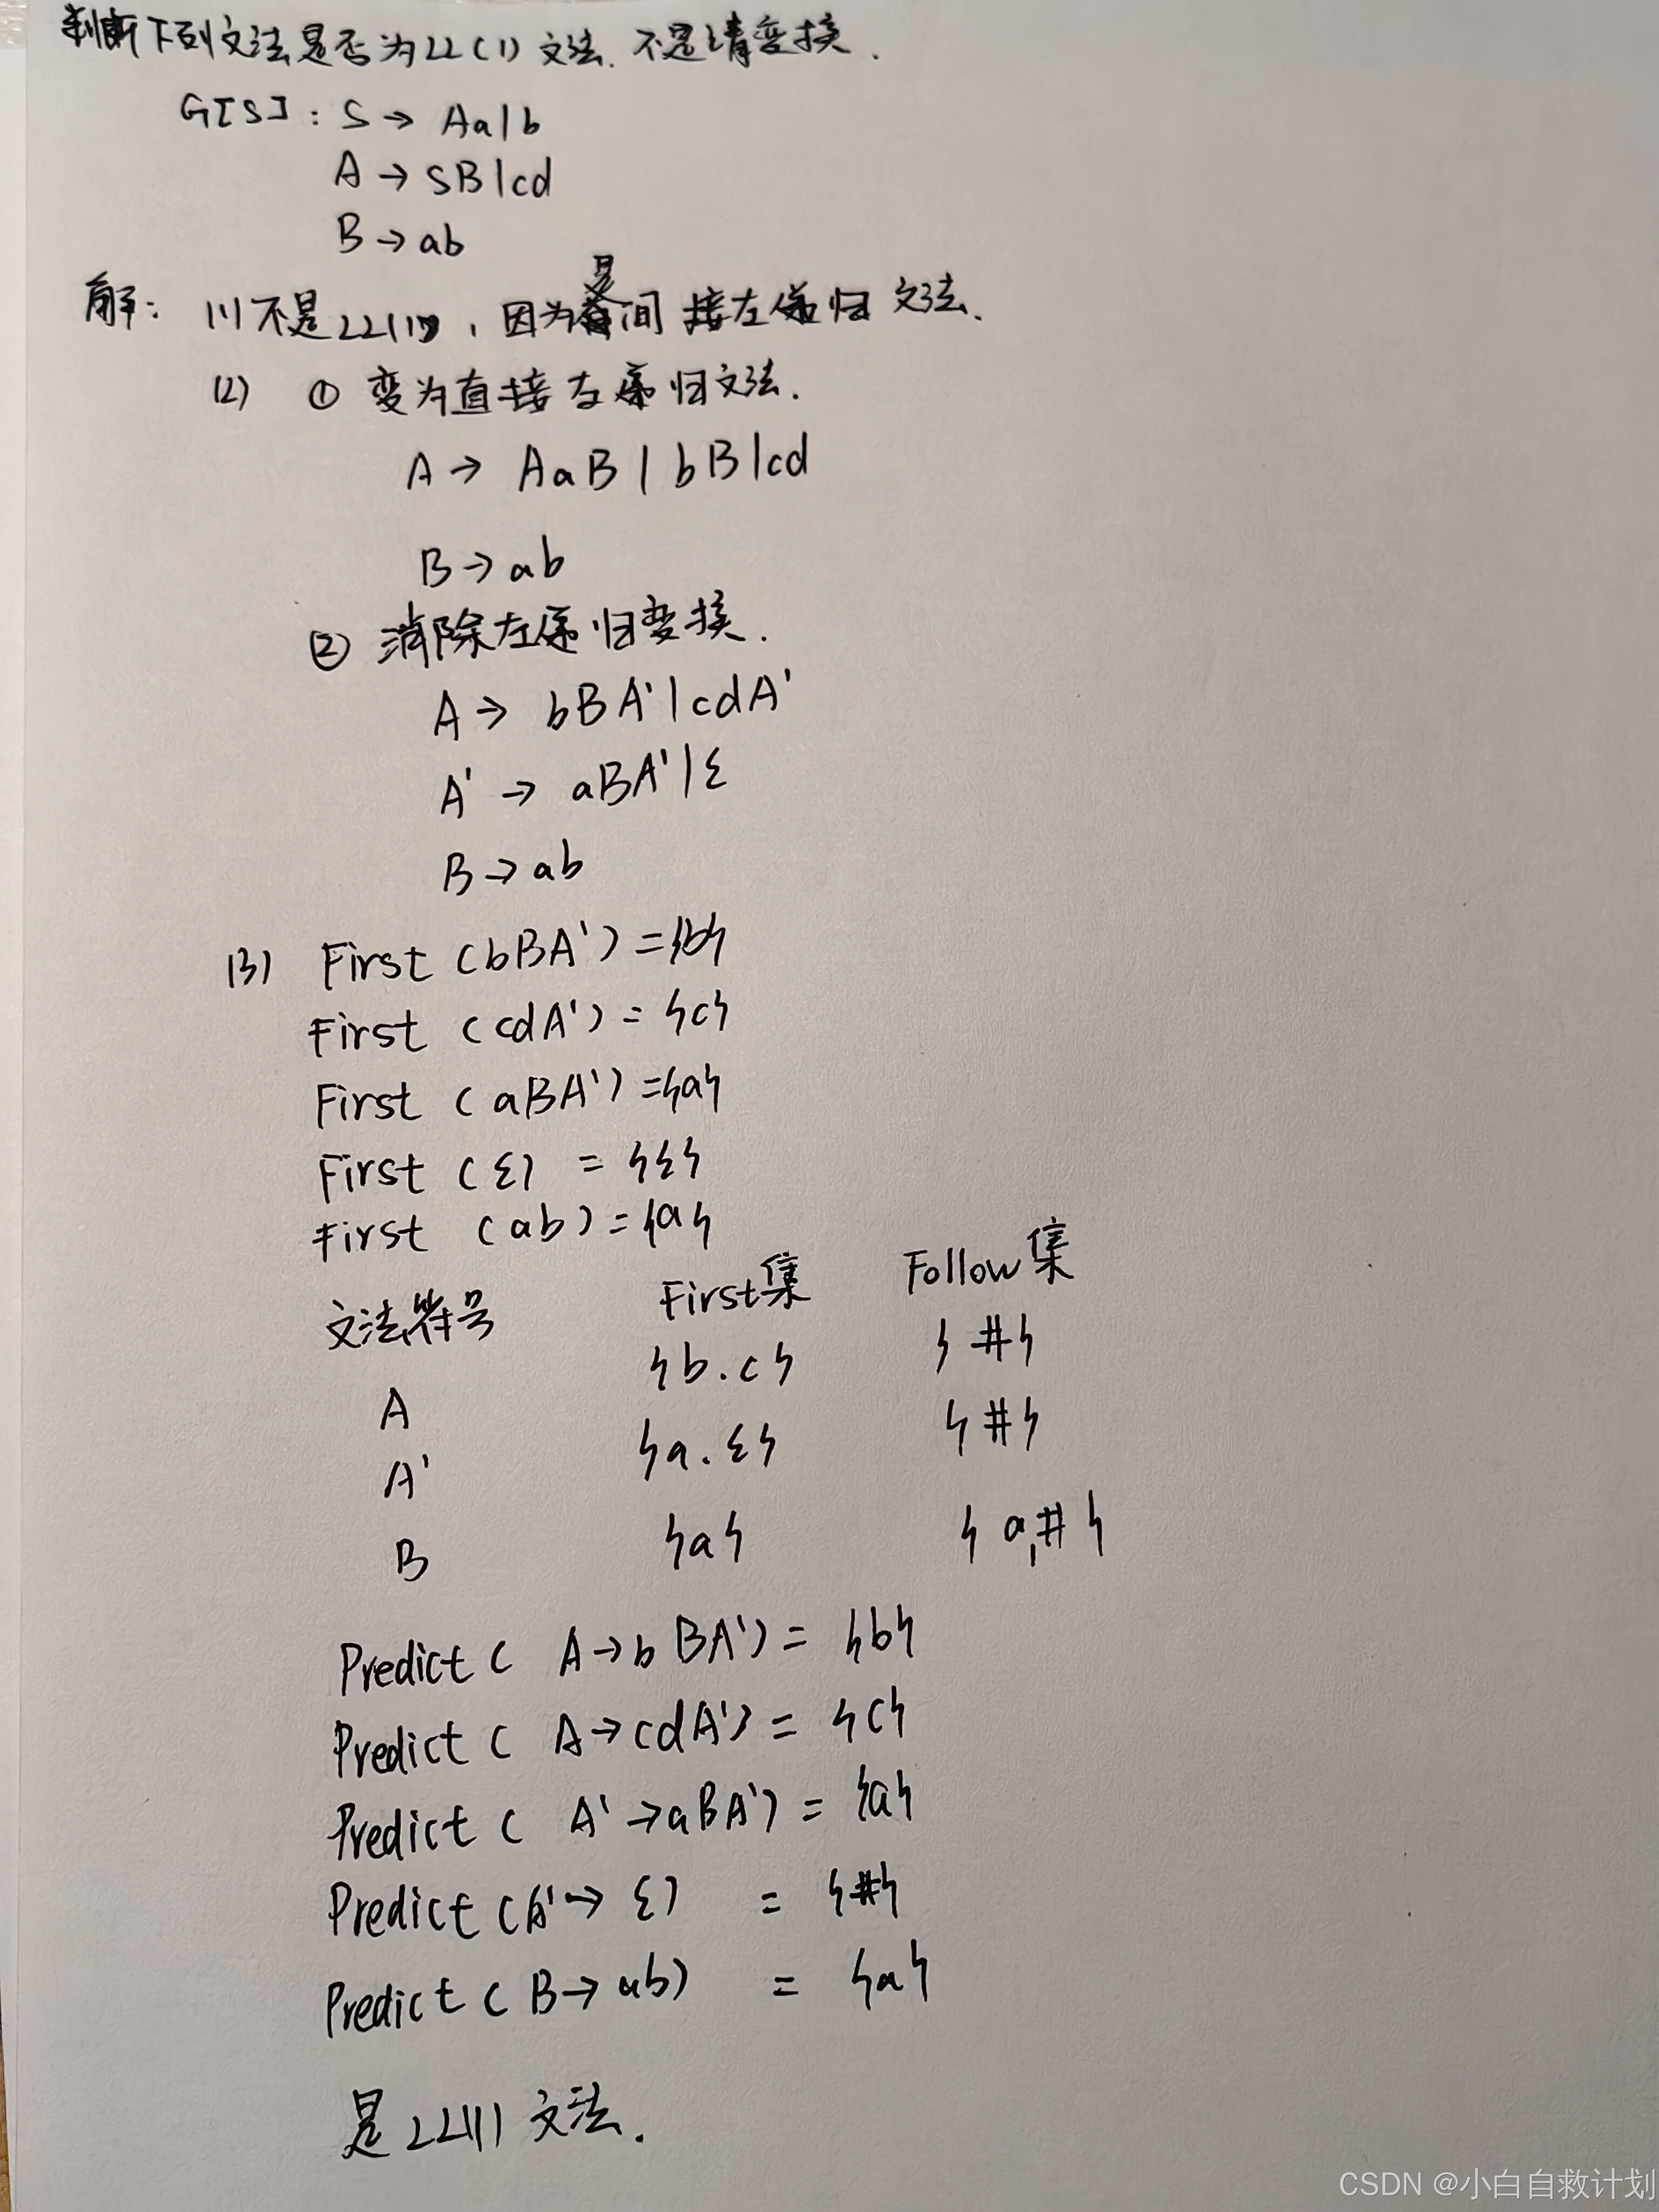 判断下列文法是否为LL(1)文法.不是请变换.
G[S]: S → Aa|b
A → SB|cd
B → ab
解: (1)不是LL(1), 因为是间接左递归文法.
(2) ① 变为直接左递归文法.
A → AaB | bB|cd
B → ab
② 消除左递归变换.
A → bBA'|cdA'
A' → aBA'|ε
B → ab
(3) First (bBA') = {b}
First (cdA') = {c}
First (aBA') = {a}
First (ε) = {ε}
First (ab) = {a}
文法符号 First集 Follow集
A {b.c} {#}
A' {a.ε} {#}
B {a} {a,#}
Predict ( A→bBA') = {b}
Predict ( A→cdA') = {c}
Predict ( A'→aBA') = {a}
Predict (A'→ ε) = {#}
Predict ( B→ab) = {a}
是LL(1)文法.
CSDN @小白自救计划